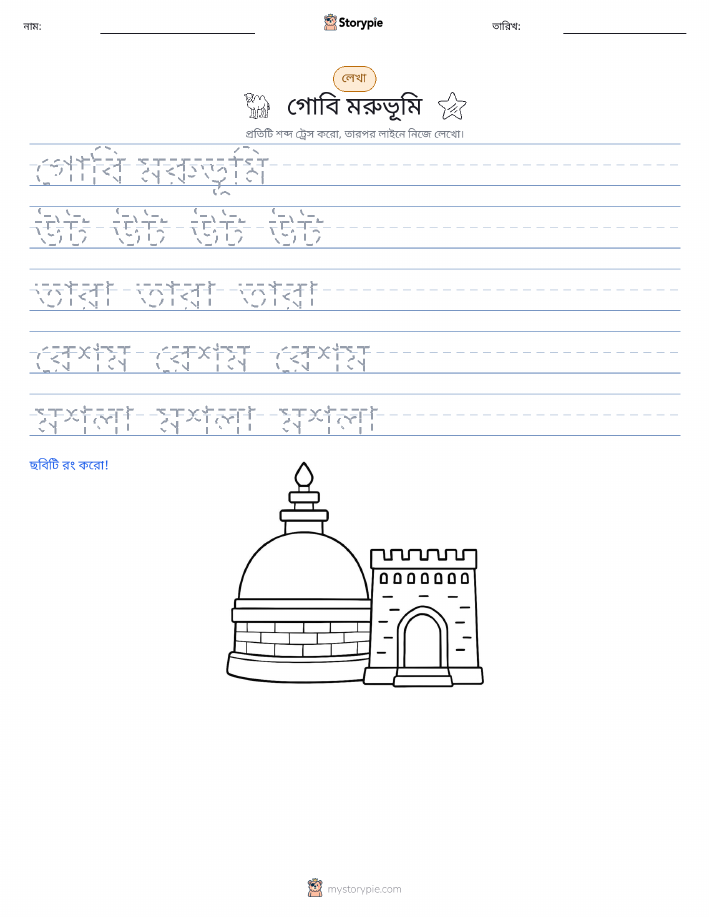 নাম:
Storypie
তারিখ:
লেখা
গোবি মরুভূমি
প্রতিটি শব্দ ট্রেস করো, তারপর লাইনে নিজে লেখো।
গোবি মরুভূমি
উট উট উট উট
তারা তারা তারা
রেশম রেশম রেশম
মশলা মশলা মশলা
ছবিটি রং করো!
mystorypie.com